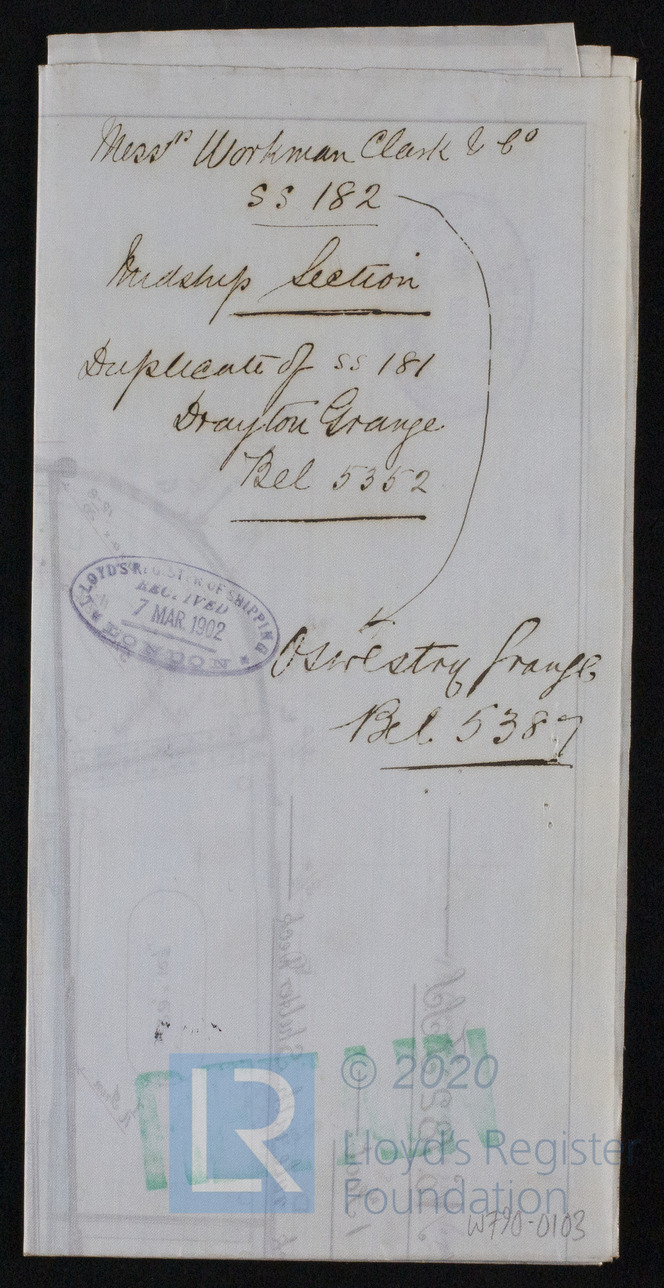 Messrs Workman Clark & Co
SS 182
Midship Section
Duplicate of SS 181
Drayton Grange
Bel 5352
LLOYD'S REGISTER OF SHIPPING
RECEIVED
7 MAR. 1902
LONDON
Oswestry Grange
Bel. 5387
© 2020
Lloyd's Register
Foundation
LR
W790-0103